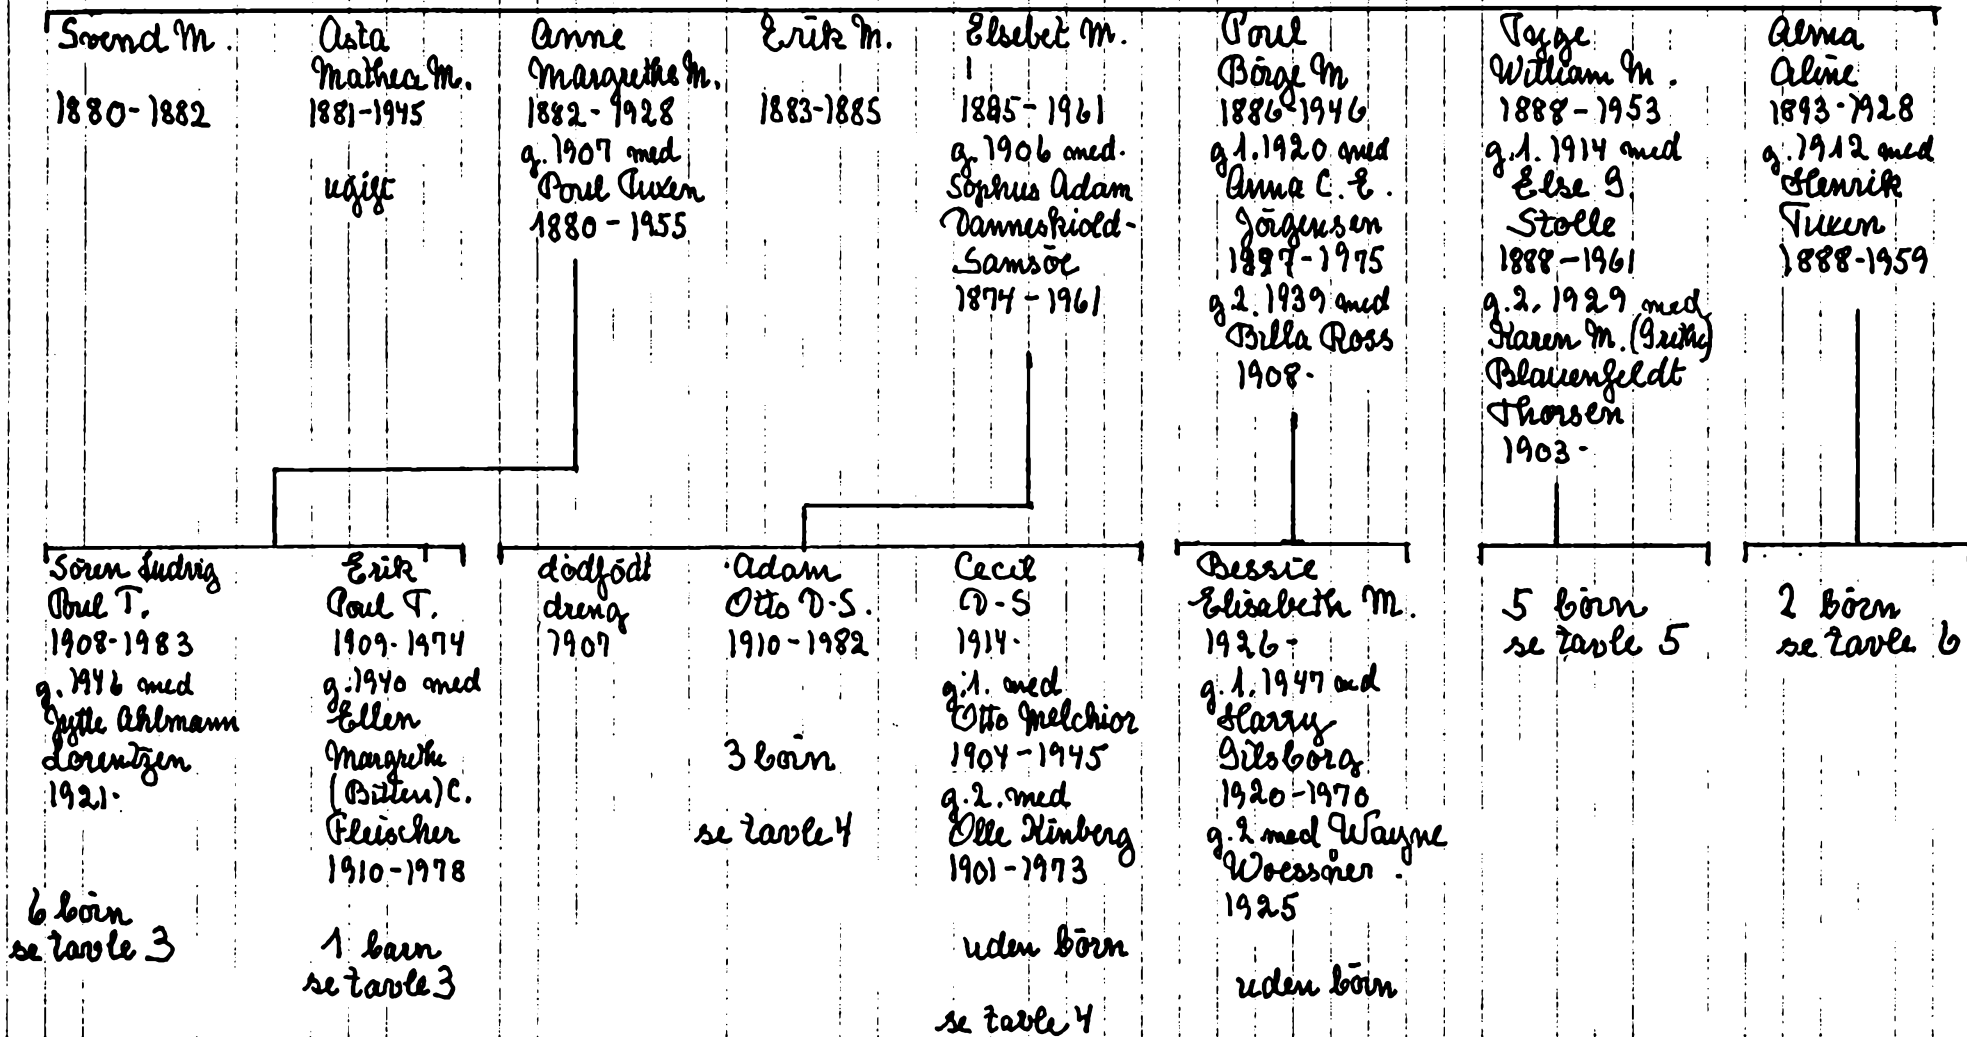 Svend M.
1880-1882
Asta
Mathea M.
1881-1945
ugift
Anne
Margrethe M.
1882-1928
g. 1907 med
Poul Tuxen
1880-1955
Erik M.
1883-1885
Elsebet M.
1885-1961
g. 1906 med.
Sophus Adam
Danneskiold-
Samsöe
1874-1961
Poul
Börge M
1886-1946
g.1. 1920 med
Anna C. E.
Jörgensen
1897-1975
g.2. 1939 med
Billa Ross
1908-
Tyge
William M.
1888-1953
g.1. 1914 med
Else G.
Stolle
1888-1961
g.2. 1929 med
Karen M. (Grethe)
Blauenfeldt
Thorsen
1903-
Alma
Aline
1893-1928
g. 1912 med
Henrik
Tuxen
1888-1959
Sören Ludvig
Poul T.
1908-1983
g. 1946 med
Jytte Ahlmann
Lorentzen
1921-
6 börn
se tavle 3
Erik
Poul T.
1909-1974
g. 1940 med
Ellen
Margrethe
(Bitten) C.
Fleischer
1910-1978
1 barn
se tavle 3
dödfödt
dreng
1907
Adam
Otto D-S.
1910-1982
3 börn
se tavle 4
Cecil
D-S
1914-
g.1. med
Otto Melchior
1904-1945
g.2. med
Olle Kinberg
1901-1973
uden börn
se tavle 4
Bessie
Elisabeth M.
1926-
g.1. 1947 med
Harry
Gilsborg
1920-1970
g.2 med Wayne
Woessner.
1925
uden börn
5 börn
se tavle 5
2 börn
se tavle 6